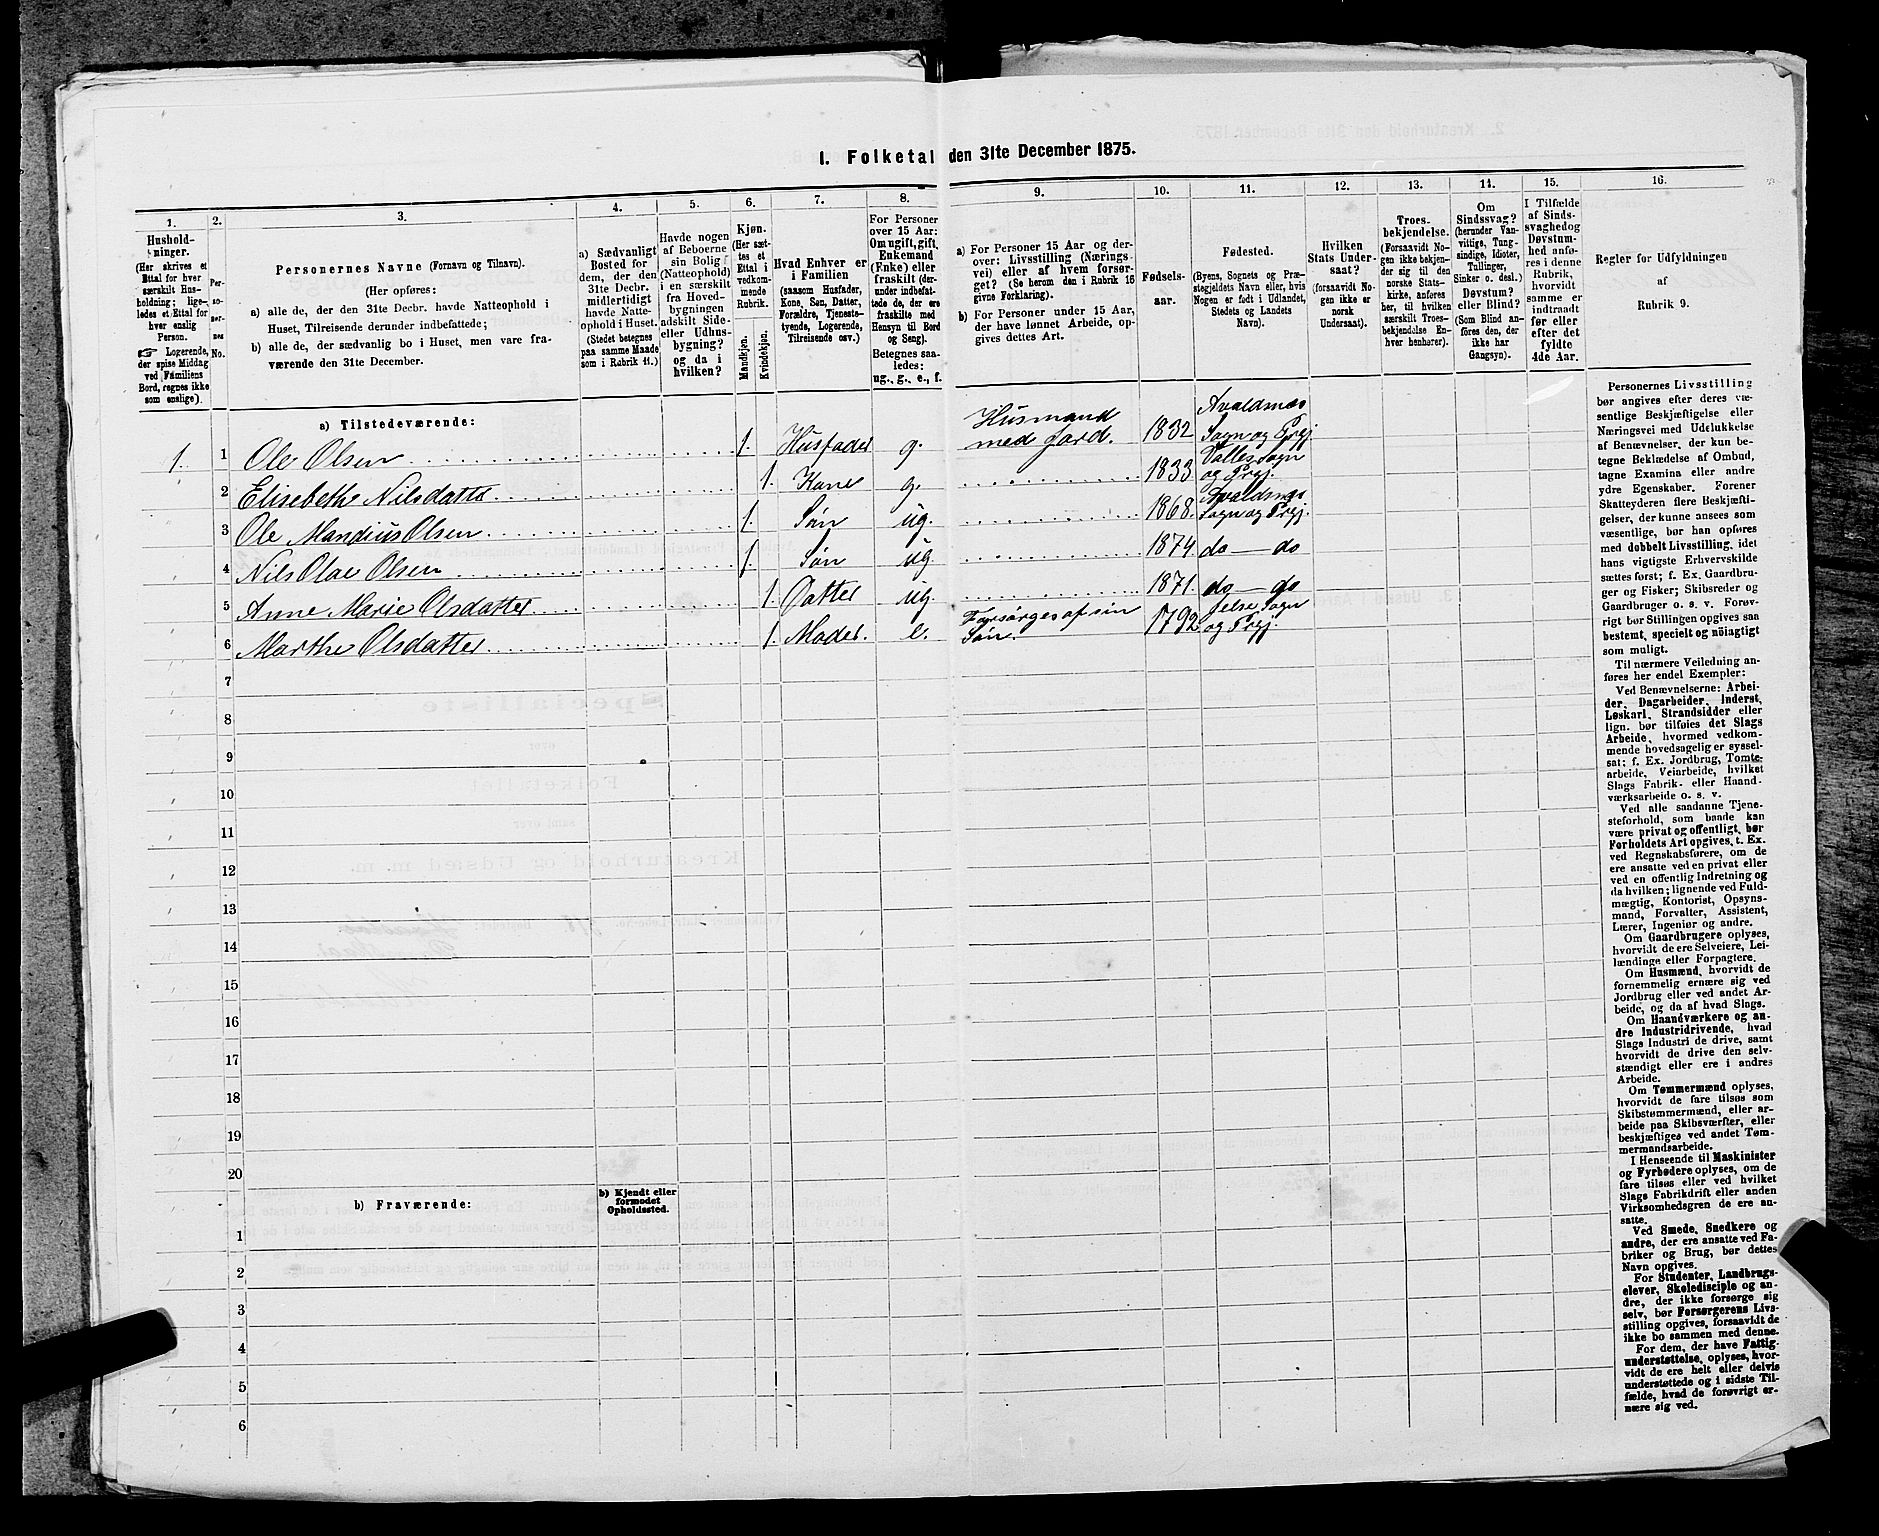 1. Folketal den 31te December 1875.
1.
2.
3.
4.
5.
6.
7.
8.
9.
10.
11.
12.
13.
14.
15.
16.
Hushold-
ninger.
(Her skrives et
Ettal for hver
særskilt Hus-
holdning; lige-
ledes et Ettal for
hver enslig
Person.
☞ Logerende,
der spise Middag
ved Familiens
Bord, regnes ikke
som enslige).
Per-
so-
ner-
nes
No.
Personernes Navne (Fornavn og Tilnavn).
(Her opføres:
a) alle de, der den 31te Decbr. havde Natteophold i
Huset, Tilreisende derunder indbefattede;
b) alle de, der sædvanlig bo i Huset, men vare fra-
værende den 31te December.
a) Sædvanligt
Bosted for
dem, der den
31te Decbr.
midlertidigt
havde Natte-
ophold i Huset.
(Stedet betegnes
paa samme Maade
som i Rubrik 11.)
Havde nogen
af Beboerne
sin Bolig
(Natteophold)
i en særskilt
fra Hoved-
bygningen
adskilt Side-
eller Udhus-
bygning?
og da i
hvilken?
Kjøn.
(Her sæt-
tes et
Ettal i
vedkom-
mende
Rubrik.
Mandkjøn.
Kvindekjøn.
Hvad Enhver er
i Familien
(saasom Husfader,
Kone, Søn, Datter,
Forældre, Tjeneste-
tyende, Logerende,
Tilreisende osv.)
For Personer
over 15 Aar:
Om ugift, gift,
Enkemand
(Enke) eller
fraskilt (der-
under indbefat-
tede de, der ere
fraskilte med
Hensyn til Bord
og Seng).
Betegnes saa-
ledes:
ug., g., e., f.
a) For Personer 15 Aar og der-
over: Livsstilling (Nærings-
vei) eller af hvem forsør-
get? (Se herom den i Rubrik 16
givne Forklaring).
b) For Personer under 15 Aar,
der have lønnet Arbeide, op-
gives dettes Art.
Fødsels-
aar.
Fødested.
(Byens, Sognets og Præ-
stegjeldets Navn eller, hvis
Nogen er født i Udlandet,
Stedets og Landets
Navn).
Hvilken
Stats Under-
saat?
(forsaavidt No-
gen ikke er
norsk
Undersaat).
Troes-
bekjendelse.
(Forsaavidt No-
gen ikke bekjen-
der sig til den
norske Stats-
kirke, anføres
her, til hvilken
særskilt Troes-
bekjendelse En-
hver henhører).
Om
Sindssvag?
(herunder Van-
vittige, Tung-
sindige, Idioter,
Tullinger,
Sinker o. desl.)
Døvstum?
eller Blind?
(Som Blind an-
føres den, der
ikke har
Gangsyn).
I Tilfælde
af Sinds-
svaghed og
Døvstum-
hed anfø-
res i denne
Rubrik,
hvorvidt
samme er
indtraadt
før eller
efter det
fyldte
4de Aar.
Regler for Udfyldningen
af
Rubrik 9.
a) Tilstedeværende:
1. 1 Ole Olsen 1. Husfader g. Husmand med Jord. 1832 Avaldsnæs Sogn og Prgj.
2 Elisebeth Nilsdatter 1. Kone g. 1833 Valle Sogn og Prgj.
3 Ole Mandius Olsen 1. Søn ug. 1868. Avaldsnæs Sogn og Prgj.
4 Nils Olai Olsen 1. Søn ug 1874 do — do
5 Anne Marie Olsdatter 1. Datter ug. 1871. do — do
6 Marthe Olsdatter 1. Moder. e. Forsørges af sin Søn. 1792 Jelse Sogn og Prgj.
7
8
9
10
11
12
13
14
15
16
17
18
19
20
b) Fraværende:
b) Kjendt eller
formodet
Opholdssted.
1
2
3
4
5
6
Personernes Livsstilling
bør angives efter deres væ-
sentlige Beskjæftigelse eller
Næringsvei med Udelukkelse
af Benævnelser, der kun be-
tegne Beklædelse af Ombud,
tagne Examina eller andre
ydre Egenskaber. Forener
Skatteyderen flere Beskjæfti-
gelser, der kunne ansees som
væsentlige, bør han opføres
med dobbelt Livsstilling, idet
hans vigtigste Erhvervskilde
sættes først; f. Ex. Gaardbru-
ger og Fisker; Skibsreder og
Gaardbruger o. s. v. Forøv-
rigt bør Stillingen opgives saa
bestemt, specielt og nöiagtigt
som muligt.
Til nærmere Veiledning an-
føres her endel Exempler:
Ved Benævnelserne: Arbei-
der, Dagarbeider, Inderst,
Løskarl, Strandsidder eller
lign. bør tilføies det Slags
Arbeide, hvormed vedkom-
mende hovedsagelig er syssel-
sat; f. Ex. Jordbrug, Tomte-
arbeide, Veiarbeide, hvilket
Slags Fabrik- eller Haand-
værksarbeide o. s. v.
Ved alle saadanne Tjene-
steforhold, som baade kan
være privat og offentligt, bør
Forholdets Art opgives, t. Ex.
ved Regnskabsførere, om de
ere ansatte ved en privat eller
ved en offentlig Indretning og
da hvilken; lignende ved Fuld-
mægtig, Kontorist, Opsyns-
mand, Forvalter, Assistent,
Lærer, Ingeniør og andre.
Om Gaardbrugere oplyses,
hvorvidt de ere Selveiere, Lei-
lændinge eller Forpagtere.
Om Husmænd, hvorvidt de
fornemmelig ernære sig ved
Jordbrug eller ved andet Ar-
beide, og da af hvad Slags.
Om Haandværkere og an-
dre Industridrivende, hvad
Slags Industri de drive, samt
hvorvidt de drive den selv-
stændigt eller ere i andres
Arbeide.
Om Tømmermænd oplyses,
hvorvidt de fare tilsøs som
Skibstømmermænd, eller ar-
beide paa Skibsværfter, eller
beskjæftiges ved andet Tøm-
mermandsarbeide.
I Henseende til Maskinister
og Fyrbødere oplyses, om de
fare tilsøs eller ved hvilket
Slags Fabrikdrift eller anden
Virksomhedsgren de ere an-
satte.
Ved Smede, Snedkere og
andre, der ere ansatte ved Fa-
briker og Brug, bør dettes
Navn opgives.
For Studenter, Landbrugs-
elever, Skoledisciple og an-
dre, der ikke forsørge sig
selv, bør Forsørgerens Livs-
stilling opgives, forsaavidt de
ikke bo sammen med denne.
For dem, der have Fattig-
understøttelse, oplyses, hvor-
vidt de ere helt eller delvis
understøttede og i sidste Til-
fælde, hvad de forøvrigt er-
nære sig ved.